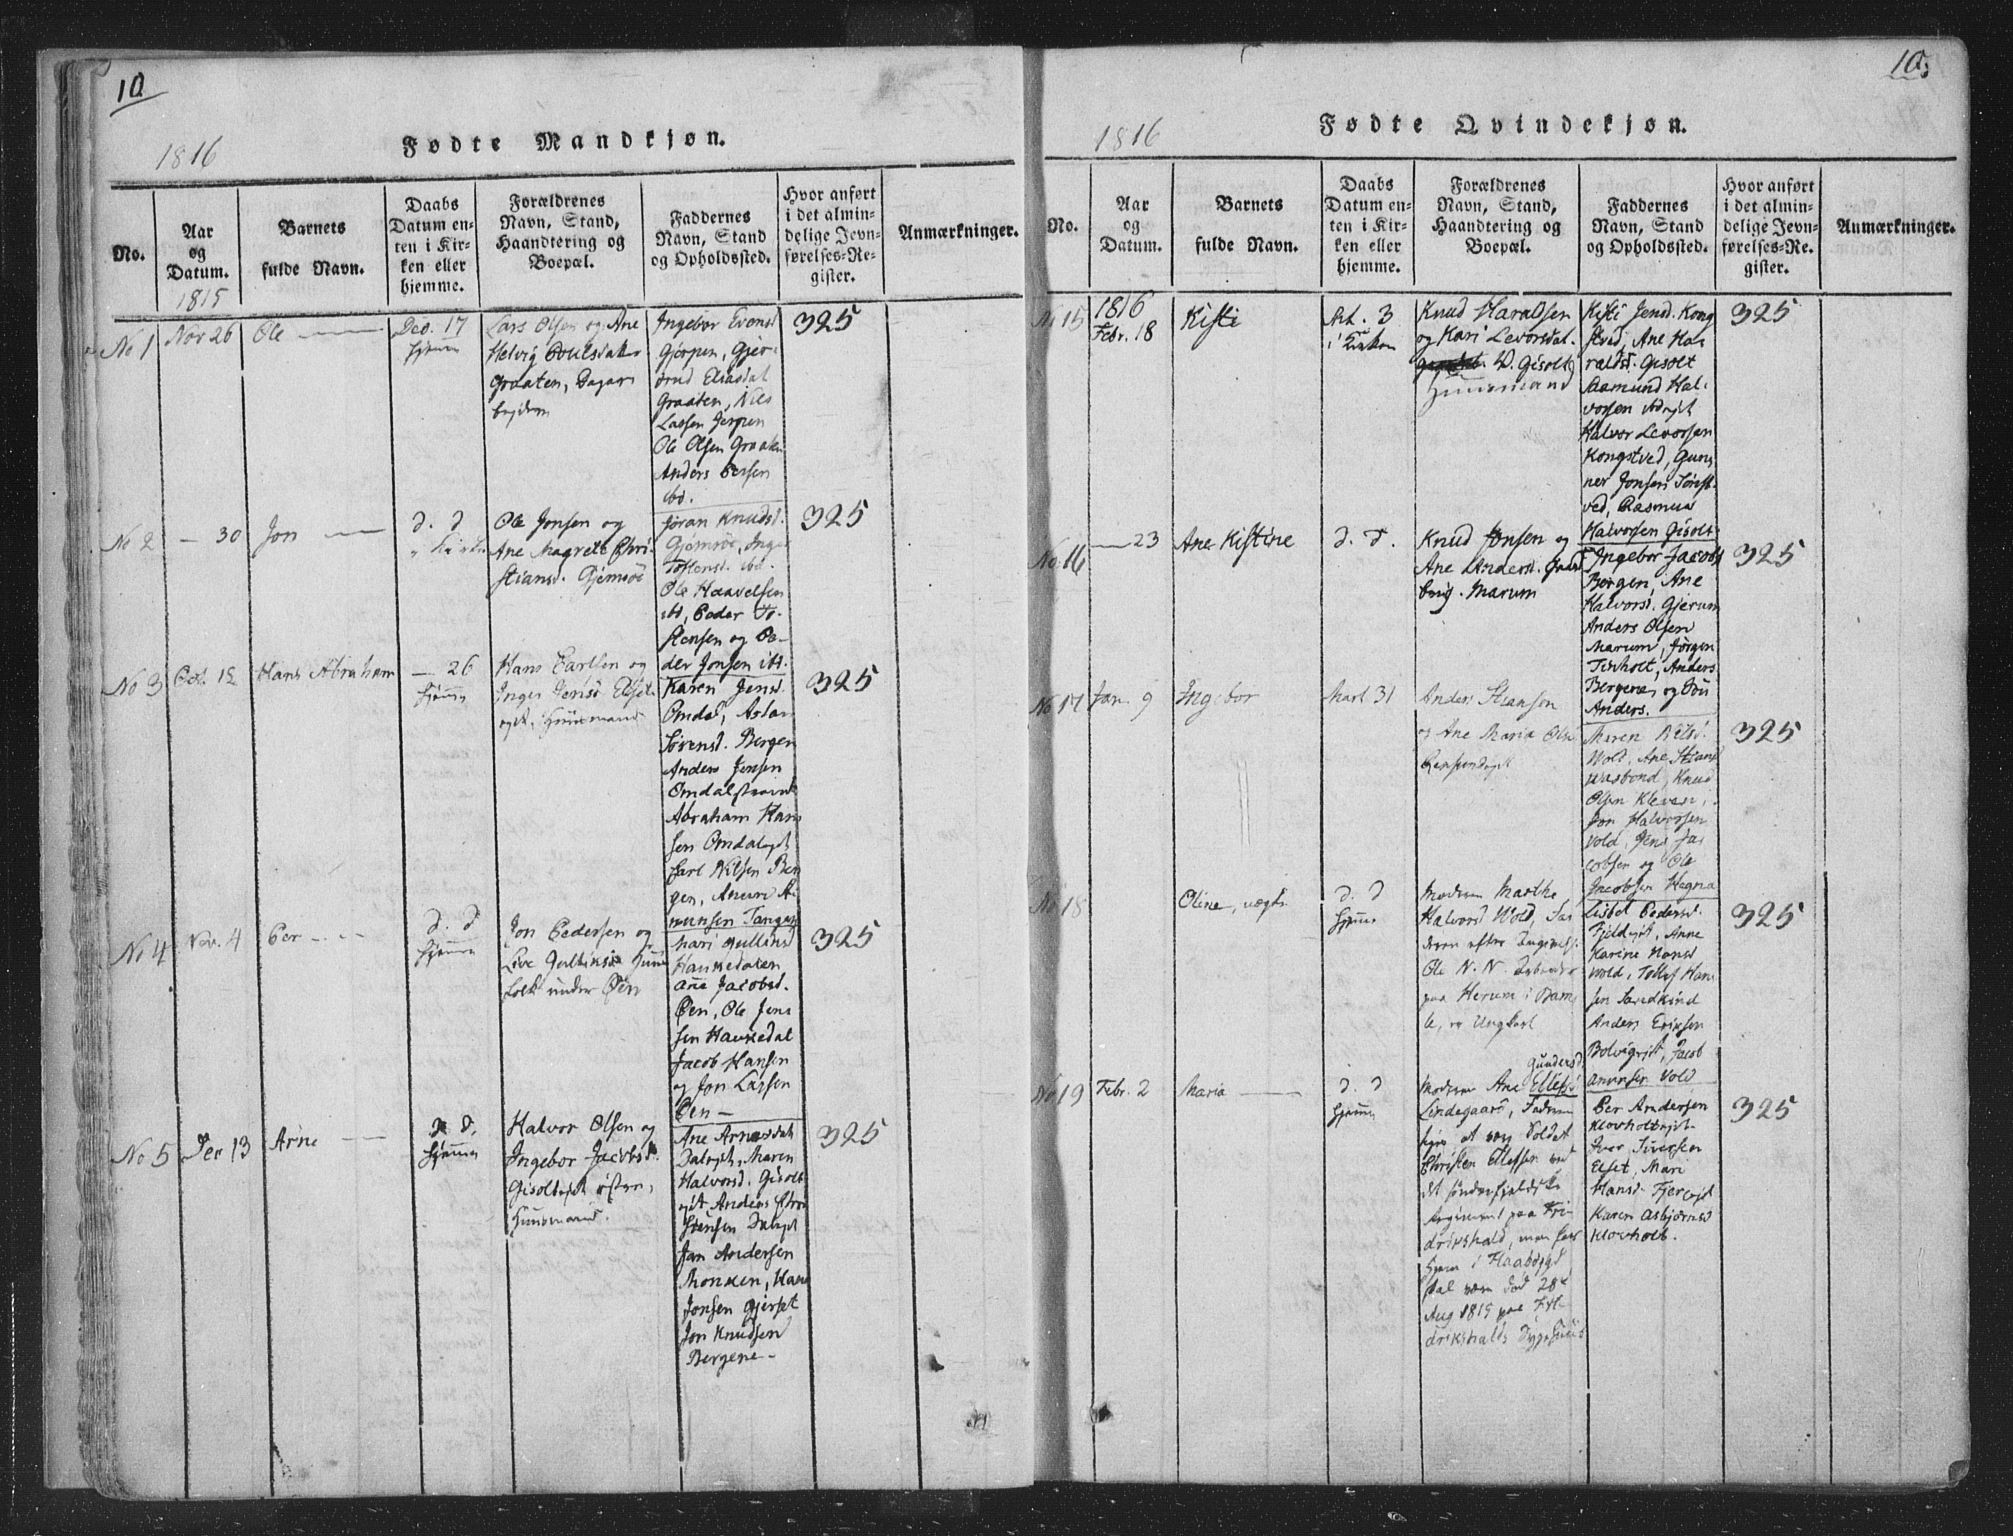 10
1816
Fødte Mandkjøn.
No.
Aar
og
Datum.
Barnets
fulde Navn.
Daabs
Datum en-
ten i Kir-
ken eller
hjemme.
Forældrenes
Navn, Stand,
Haandtering og
Boepæl.
Faddernes
Navn, Stand
og Opholdssted.
Hvor anført
i det almin-
delige Jevn-
førelses-Re-
gister.
Anmærkninger.
1815
No 1
Nov 26
Ole
Dec. 17
hjemme
Lars Olsen og Ane
Helvig Poulsdat.
Graaten, Dagar-
bejder
Ingebor Evensd
Gjerpen, Gjer-
trud Eliasdat
Graaten, Niels
Lassen Jerpen
Ole Olsen Graaten
Anders Persen
ibd.
325
No 2
- 30
Jon
d. d
i Kirken
Ole Jonsen og
Ane Magrete Chri-
stiansd. Gjemsöe
Joran Knudsd.
Gjemsöe, Inger
Tostensd. ibd.
Ole Haavelsen
ibd, Peder To-
stensen og Pe-
der Jonsen ibd.
325
No 3
Oct. 12
Hans Abraham
- 26
hjemme
Hans Carlsen og
Inger Jensd Elset-
eyet. Huusmand
Karen Jensd.
Omdal, Aslau
Sörensd. Bergen
Anders Jensen
Omdalstrand
Abraham Han
sen Omdalejet
Carl Nilsen Ber
gen,
Tangen
325
No 4
Nov. 4
Per
d. d
hjemme
Jon Pedersen og
Live Gulliksd Huus
folk under Öen
Mari Gulliksd
Haukedalen
Ane Jacobsd.
Öen, Ole Jen-
sen Haukedal
Jacob Hansen
og Jon Larsen
Öen -
325
No 5
Dec 13
Arne
d. d.
hjemme
Halvor Olsen og
Ingebor Jacobsd.
Gisoltejet östen,
Huusmand.
Ane Arnesdat
Dalejet, Maren
Halvorsd. Gisolt
ejet Anders Chri
stensen Dalejet
Jan Andersen
Monken, Hans
Jonsen Gjerset
Jon Knudsen
Bergene -
325
10.
1816
Fødte Qvindekjøn.
No.
Aar
og
Datum.
Barnets
fulde Navn.
Daabs
Datum en-
ten i Kir-
ken eller
hjemme.
Forældrenes
Navn, Stand,
Haandtering og
Boepæl.
Faddernes
Navn, Stand
og Opholdssted.
Hvor anført
i det almin-
delige Jevn-
førelses-Re-
gister.
Anmærkninger.
No 15
1816
Febr. 18
Kisti
Mrt. 3
i Kirken
Knud Haraldsen
og Kari Levorsdat.
W. Gisolt
Huusmand
Kisti Jensd. Kong
stved, Ane Ha-
raldsd. Gisolt
Aamund Hal-
vorsen
Halvor Levorsen
Kongstved, Gun-
ner Jonsen Tönst-
ved, Rasmus
Halvorsen Gisolt
325
No. 16
- 23
Ane Kistine
d. d.
Knud Jonsen og
Ane Andersd. Gaard
brug. Marum
Ingebor Jacobsd
Bergen, Ane
Halvorsd. Gjerum
Anders Olsen
Marum, Jörgen
Tinholt, Anders
Bergene, og Jon
Anders.
325
No 17
Jan. 9
Ingebor
Mart 31
Anders Stianson
og Ane Maria Olsd
Maren Nilsd.
Wold, Ane Stiansd
Knud
Olsen Kleven,
Jon Halvorsen
Vold, Jens Ja-
cobsen og Ole
Jacobsen Hegna
325
No 18
Oline, uægte
d. d
hjemme
Modren Marthe
Halvorsd Wold, Fa
deren efter
Ole N. N.
paa Herum i Bam-
le, og Ungkarl
Lisbet Pedersd.
Fjeldejet, Anne
Karine Hansd
Wold, Tollef Han
sen Sandkind
Anders Eriksen
Bolvigejet, Jacob
Anunsen Vold
325
No 19
Febr. 2
Maria
d. d
hjemme
Gundersd
Modren Ane Ellefsd
Lindegaard, Fadren
siges at være Soldat
Christen Ellefsen ved
det söndenfjeldske
Regiment paa Fri-
drikshald, men
hjem i
skal være död 28de
Aug 1815 paa Frid-
drikshalds Sygehuus
Per Andersen
Klovholtejet
Iver Iversen
Elset, Mari
Hansd. Fjerejet
Karen Asbjörnsd
Klovholt.
325